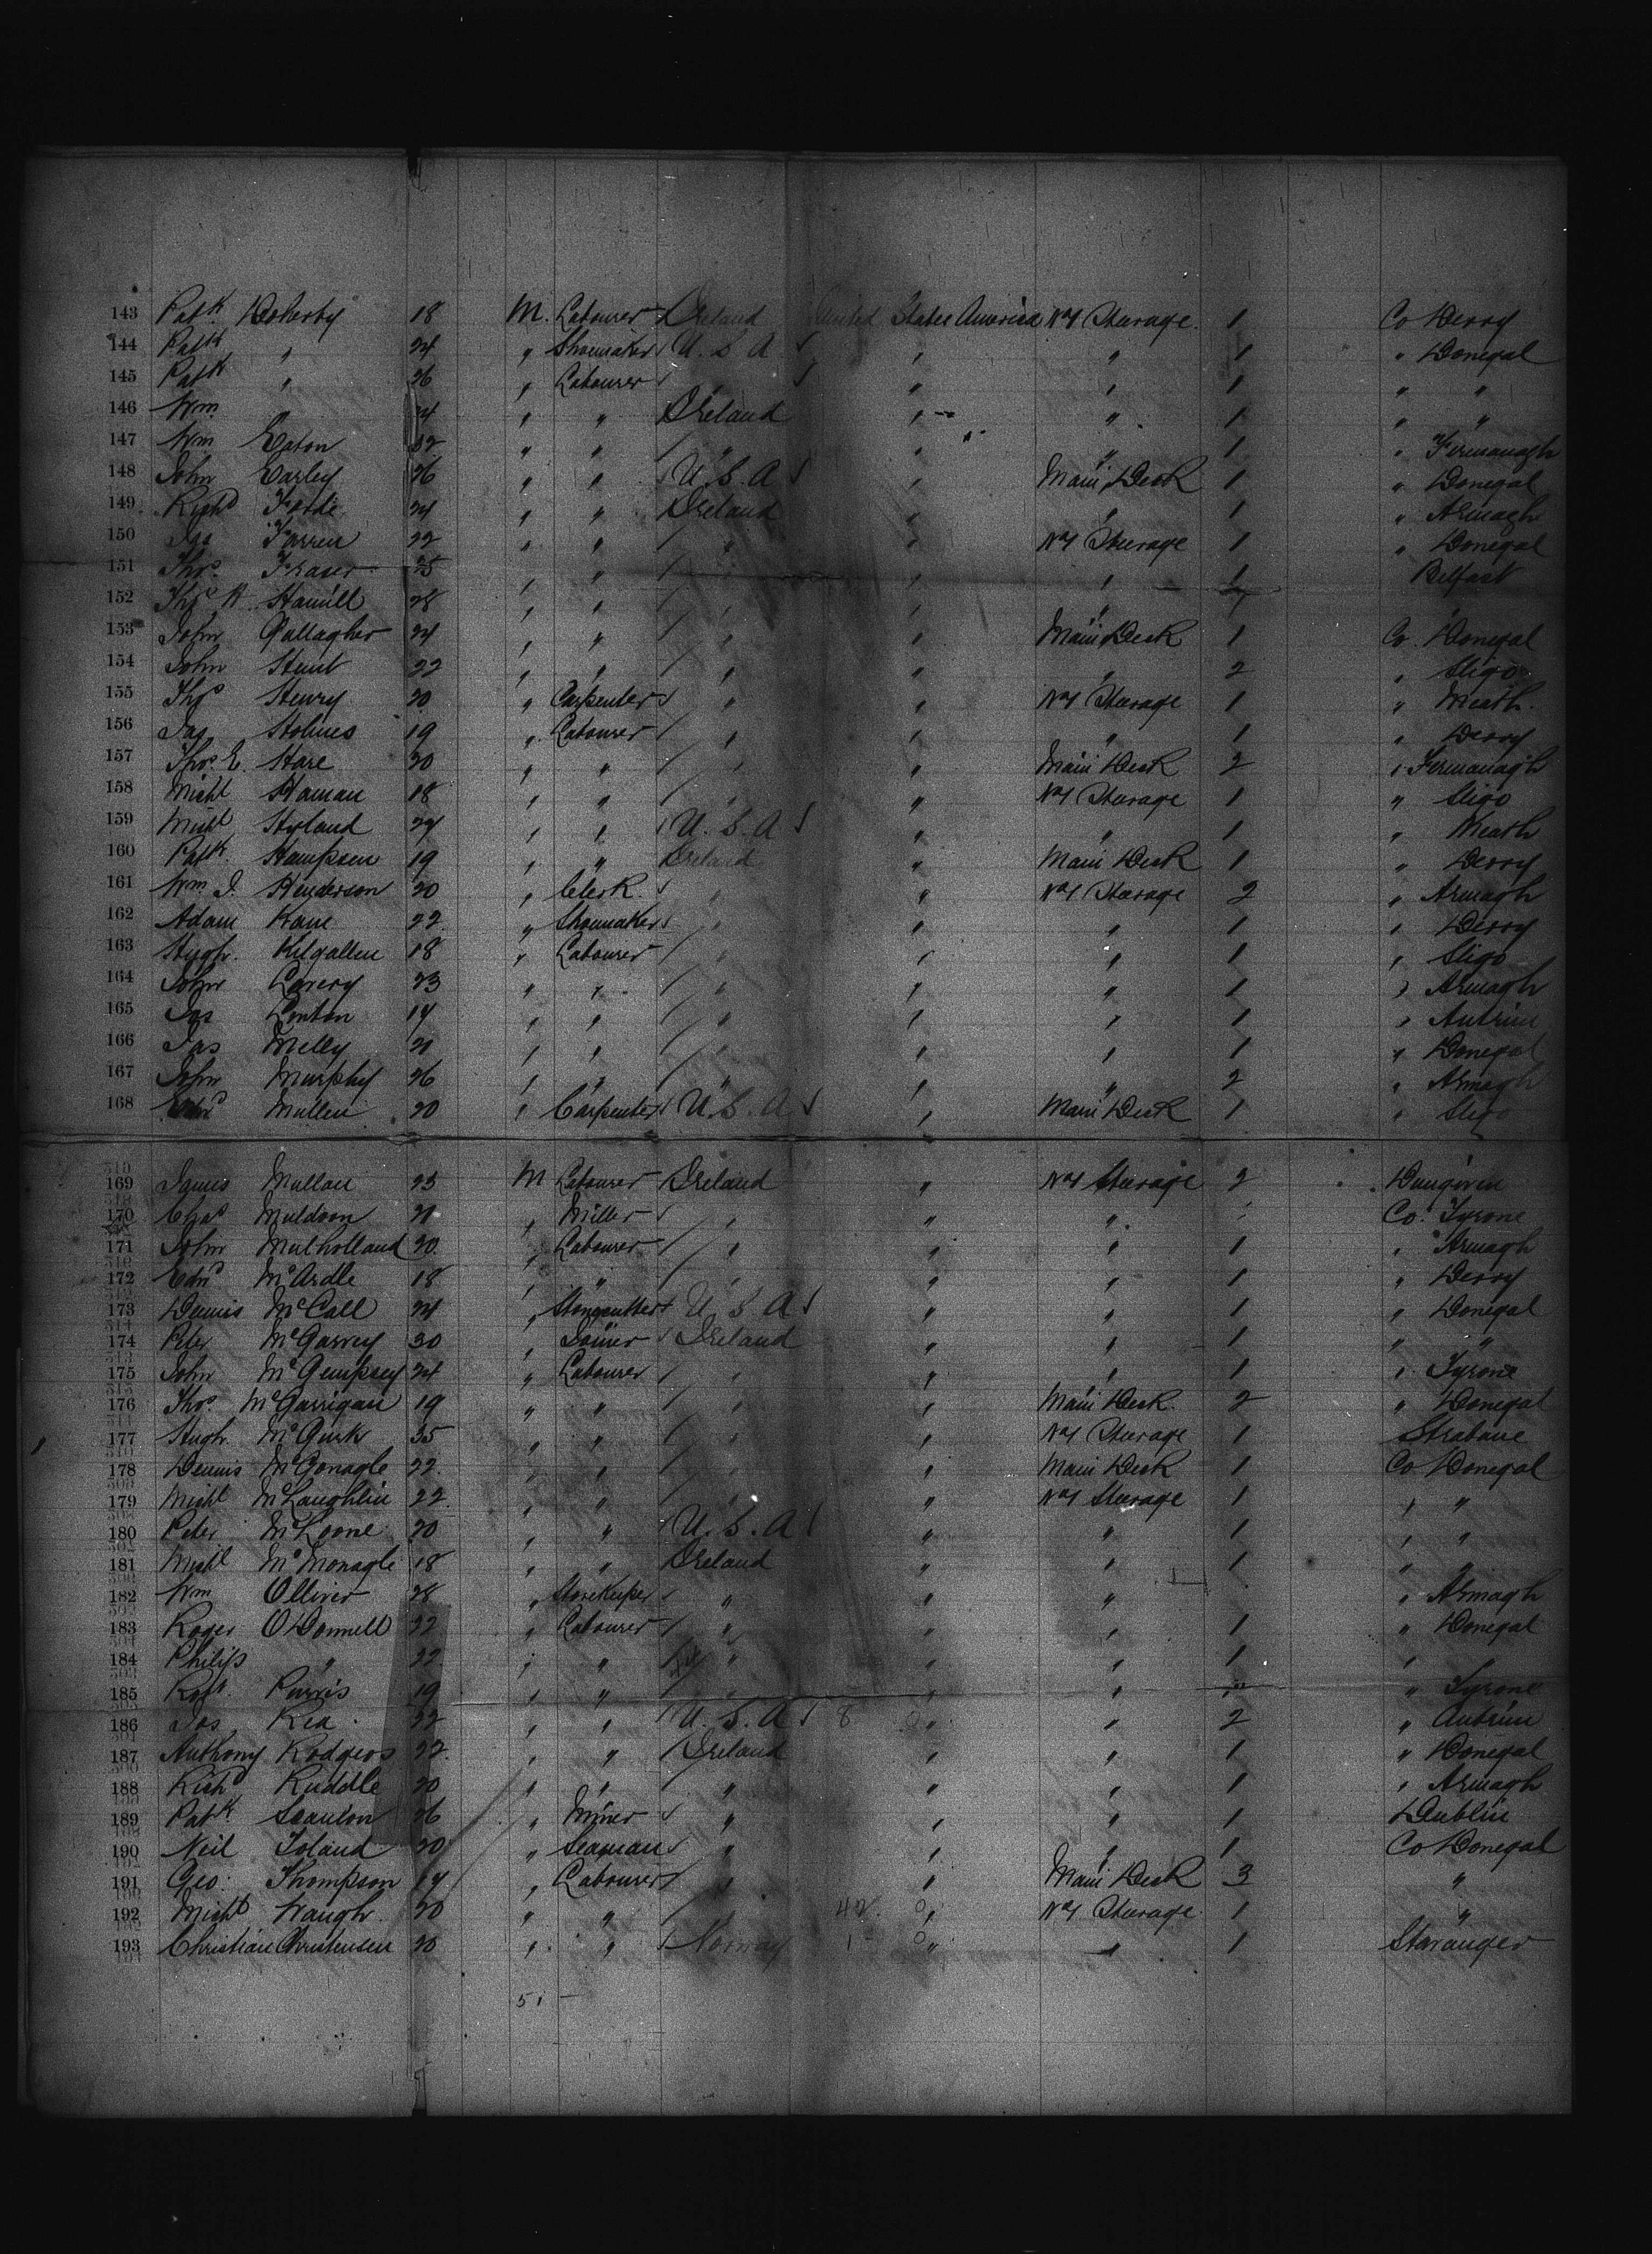 143 Patk Doherty 18 M. Labourer Ireland United States America No 1 Steerage 1 Co Derry
144 Patk " 24 " Shoemaker U.S.A " " 1 " Donegal
145 Patk " 26 " Labourer " " 1 " "
146 Wm 24 " " Ireland " " 1 " "
147 Wm Eaton 32 " " " " " 1 " Fermanagh
148 John Earley 26 " " U.S.A " Main Deck 1 " Donegal
149 Richd Forde 24 " " Ireland " " 1 " Armagh
150 Jas Farren 22 " " " " No 1 Steerage 1 " Donegal
151 Thos. Frazer 25 " " " " " 1 Belfast
152 Thos H. Hamill 28 " " " " "
153 John Gallagher 24 " " " " Main Deck 1 Co. Donegal
154 John Hunt 22 " " " " " 2 " Sligo
155 Thos Henry 20 " Carpenter " " No 1 Steerage 1 " Meath.
156 Jas Holmes 19 " Labourer " " " 1 " Derry
157 Thos. E. Hare 20 " " " " Main Deck 2 " Fermanagh
158 Michl Haman 18 " " " " No 1 Steerage 1 " Sligo
159 Michl Hyland 24 " " U.S.A " " 1 " Meath
160 Patk. Hampsen 19 " " Ireland " Main Deck 1 " Derry
161 Wm. J. Henderson 20 " Clerk " " No 1 Steerage 2 " Armagh
162 Adam Kane 22 " Shoemaker " " " 1 " Derry
163 Hugh. Kilgallen 18 " Labourer " " " 1 " Sligo
164 John Lavery 23 " " " " " 1 " Armagh
165 Jas Lenton 19 " " " " " 1 " Antrim
166 Jas Melly 21 " " " " " 1 " Donegal
167 John Murphy 26 " " " " " 2 " Armagh
168 Edwd Mullen 20 " Carpenter U.S.A " Main Deck 1 " Sligo
169 James Mullan 23 M Labourer Ireland " No 1 Steerage 2 Dungiven
170 Chas Muldoon 21 " Miller " " " Co. Tyrone
171 John Mulholland 20 " Labourer " " " 1 " Armagh
172 Edwd McArdle 18 " " " " " 1 " Derry
173 Dennis McCall 24 " Stonecutter U.S.A " " 1 " Donegal
174 Peter McGarvey 30 " Joiner Ireland " " 1 " "
175 John McGempsey 24 " Labourer " " " 1 " Tyrone
176 Thos McGarrigan 19 " " " " Main Deck. 2 " Donegal
177 Hugh. McGurk 35 " " " " No 1 Steerage 1 Strabane
178 Dennis McGonagle 22 " " " " Main Deck 1 Co Donegal
179 Michl McLaughlin 22 " " " " No 1 Steerage 1 " "
180 Peter McLoone 20 " " U.S.A " " 1 " "
181 Michl McMonagle 18 " " Ireland " " 1 " "
182 Wm Olliver 28 " Storekeeper " " " " Armagh
183 Roger O'Donnell 22 " Labourer " " " 1 " Donegal
184 Philip " 22 " " " " " 1 "
185 Robt. Purvis 19 " " " " " " Tyrone
186 Jas Rea 22 " " U.S.A 8 " " 2 " Antrim
187 Anthony Rodgers 22 " " Ireland " " 1 " Donegal
188 Richd Ruddle 20 " " " " " 1 " Armagh
189 Patk Scanlon 26 " Miner " " " 1 Dublin
190 Neil Toland 20 " Seaman " " " 1 Co Donegal
191 Geo: Thompson 19 " Labourer " " Main Deck 3 "
192 Michl Waugh 20 " " 42 " No 1 Steerage 1 "
193 Christian Christensen 20 " " Norway 1 " " 1 Stavanger
51